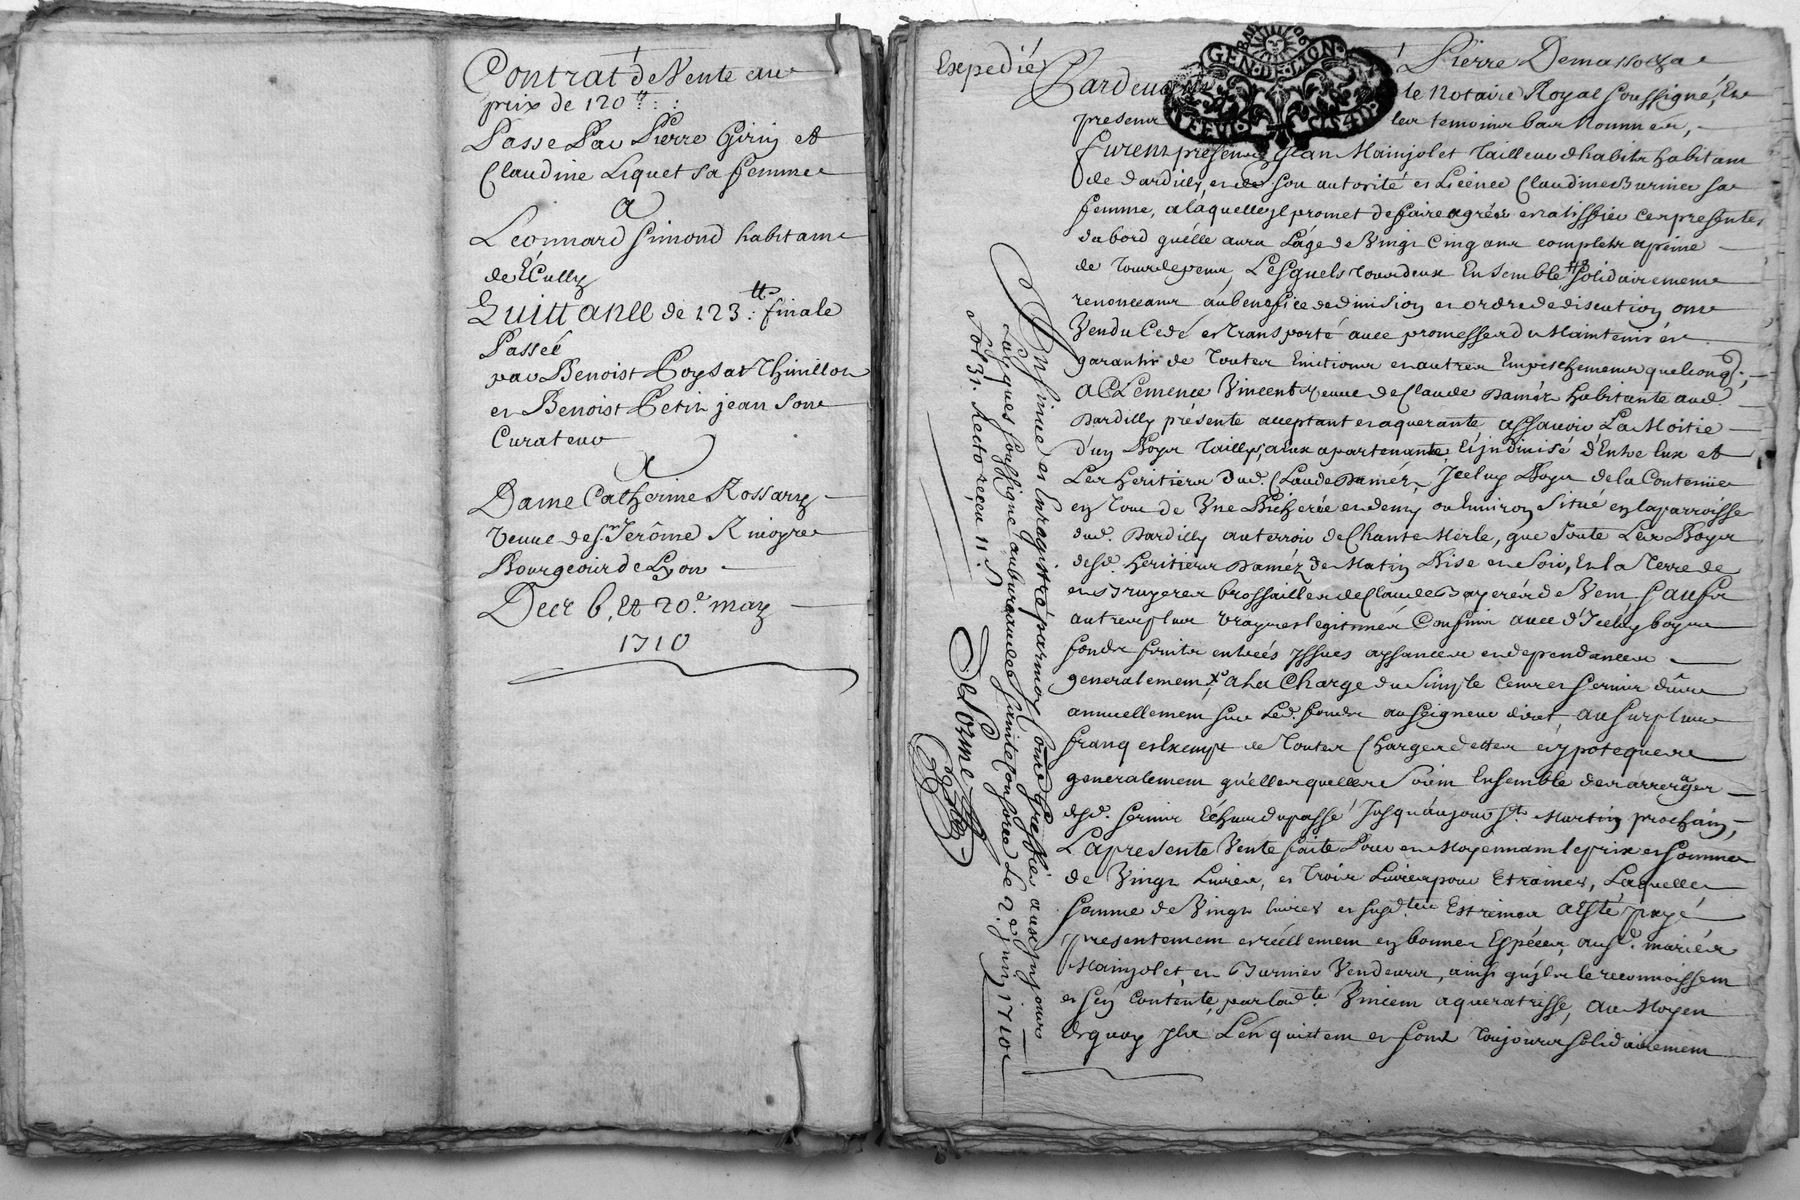 Contrat de Vente au
prix de 120ᵗᵗ : :
Passe Par Pierre Girin et
Claudine Liquet sa femme
A
Léonnard Simond habitant
de Ecully
Quittance de 123ᵗᵗ : finale
Passée
par Benoist
et Benoist Petit jean son
Curateur
A
Dame Catherine Rossary
veuve de sʳ Jerôme
Bourgeois de Lyon
Des 6, Et 20.ᵉ may
1710
Expedié
GEN. DE LION
Pardevant Pierre
le Notaire Royal soussigné, En
presence les temoins bas nommés,
furent presents Jean Mainjolet Tailleur d'habits habitant
de dardilly, et de son autorité et Licence Claudine Burnier sa
femme, a laquelle yl promet de faire agréer et ratiffier ces presentes
dabord quélle aura Láge de Vingt Cinq ans complets a peine
de tous depens, Lesquels tous deux Ensemble solidairement
renonceant au benefice de division et ordre de discution ont
Vendu Cedé et transporté avec promesse de Maintenir et
garantir de toutes Evictions et autres Empeschements quelconqˢ;
A Clemence Vincent veuve de Claude Damés habitante aud.
Dardilly présente acceptant et aquerante assavoir La Moitié
d'un Boys Taillys, a eux apartenante, Et jndivisé d'Entre Eux et
Les Heritiers dud. Claude Damés, Jceluy Boys de la Contenüe
en Tout de Une Bicherée et demy ou Environ Situé en la parroisse
dud. Dardilly au terroir de Chante Merle, que Joute Les Boys
desd. Heritiers Daméz de Matin Bise et Soir, Et la Terre
et Bruyeres brossailles de Claude de Vent Saufs
autres plus vrays et legitimes Confins avec d'Jceluy boys
fonds fruits entreés yssues aysances et dependances
generalement, a La Charge du Simple Cens et Servis dûs
annuellement sur Led. fonds au seigneur direct, au surplus
franq et Exempt de Toutes Charges dettes et ypoteques
generalement quélles quelles soient Ensemble des arrerages
desd. servis Echus du passé Jusquáujour sᵗ. Martin prochain,
La presente Vente faite Pour et Moyennant le prix et somme
de Vingt Livres, et Trois Livres pour Etraines, Laquelle
somme de Vingt livres et susdᵗᵉˢ Estreines a Esté payé
presentement et réellement en bonnes Espéces, ausd. mariés
Mainjolet et Burnier Vendeurs, ainsi quyls le reconnoissent
et sen contente, par ladᵗᵉ Vincent aqueratrisse, Au Moyen
dequoy yls Len quittent et font Toujours solidairement
Jnsinué et Enregistré par moy Comis Greffier aux jnsinuaons
Laÿques soussigné au bureau de Le 2. juin 1710
fol 31. Recto reçeu 11 s
DeLorme